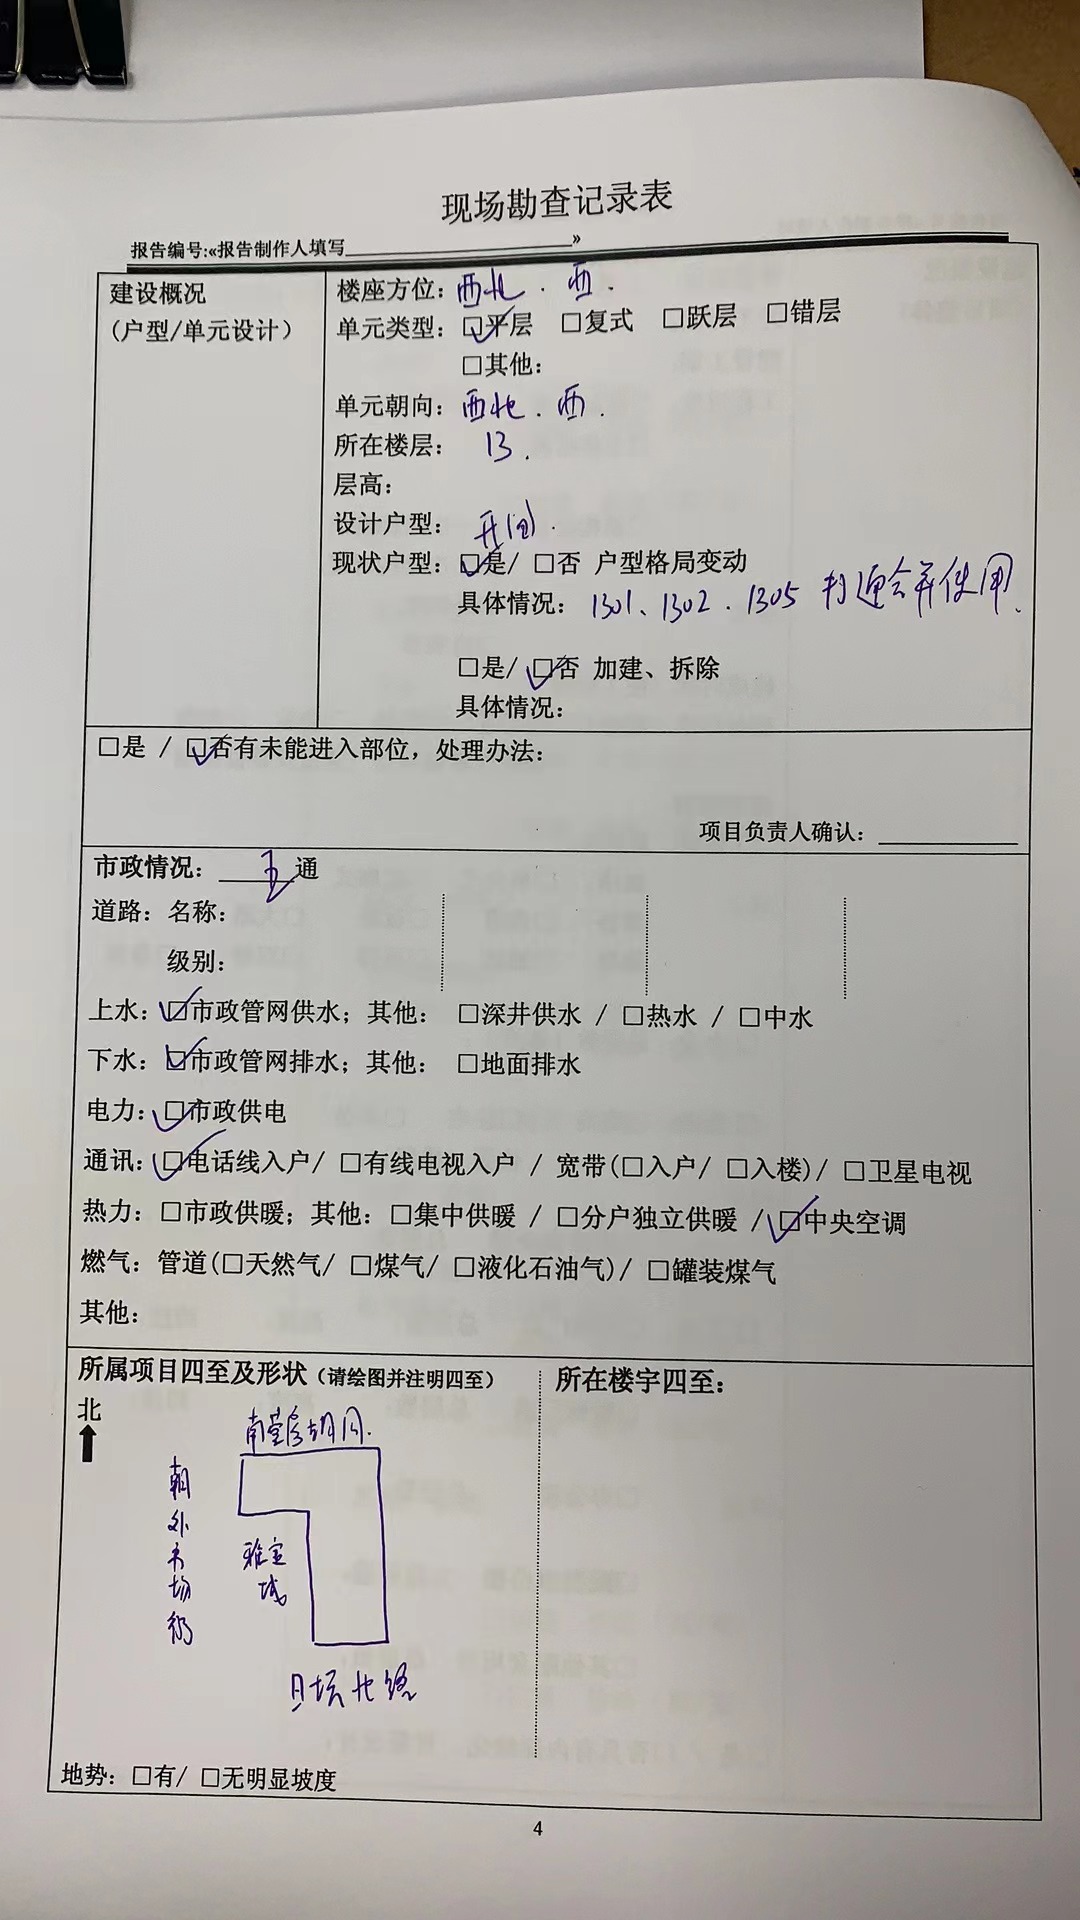 现场勘查记录表
报告编号:«报告制作人填写»
建设概况
(户型/单元设计)
楼座方位: 西北.西.
单元类型: ☑平层 □复式 □跃层 □错层
□其他:
单元朝向: 西北.西.
所在楼层: 13.
层高:
设计户型: 开间.
现状户型: ☑是/ □否 户型格局变动
具体情况: 1301、1302.1305 打通合并使用.
□是/ ☑否 加建、拆除
具体情况:
□是 / ☑否有未能进入部位，处理办法:
项目负责人确认:
市政情况: 五通
道路: 名称:
级别:
上水: ☑市政管网供水; 其他: □深井供水 / □热水 / □中水
下水: ☑市政管网排水; 其他: □地面排水
电力: ☑市政供电
通讯: ☑电话线入户/ □有线电视入户 / 宽带(□入户/ □入楼)/ □卫星电视
热力: □市政供暖; 其他: □集中供暖 / □分户独立供暖 / ☑中央空调
燃气: 管道(□天然气/ □煤气/ □液化石油气)/ □罐装煤气
其他:
所属项目四至及形状 (请绘图并注明四至)
所在楼宇四至:
北
南营房胡同.
朝外市场街
雅宝城
日坛北路
地势: □有/ □无明显坡度
4